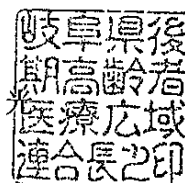 岐阜県後
期高齢者
光
医療広域
連合長之印